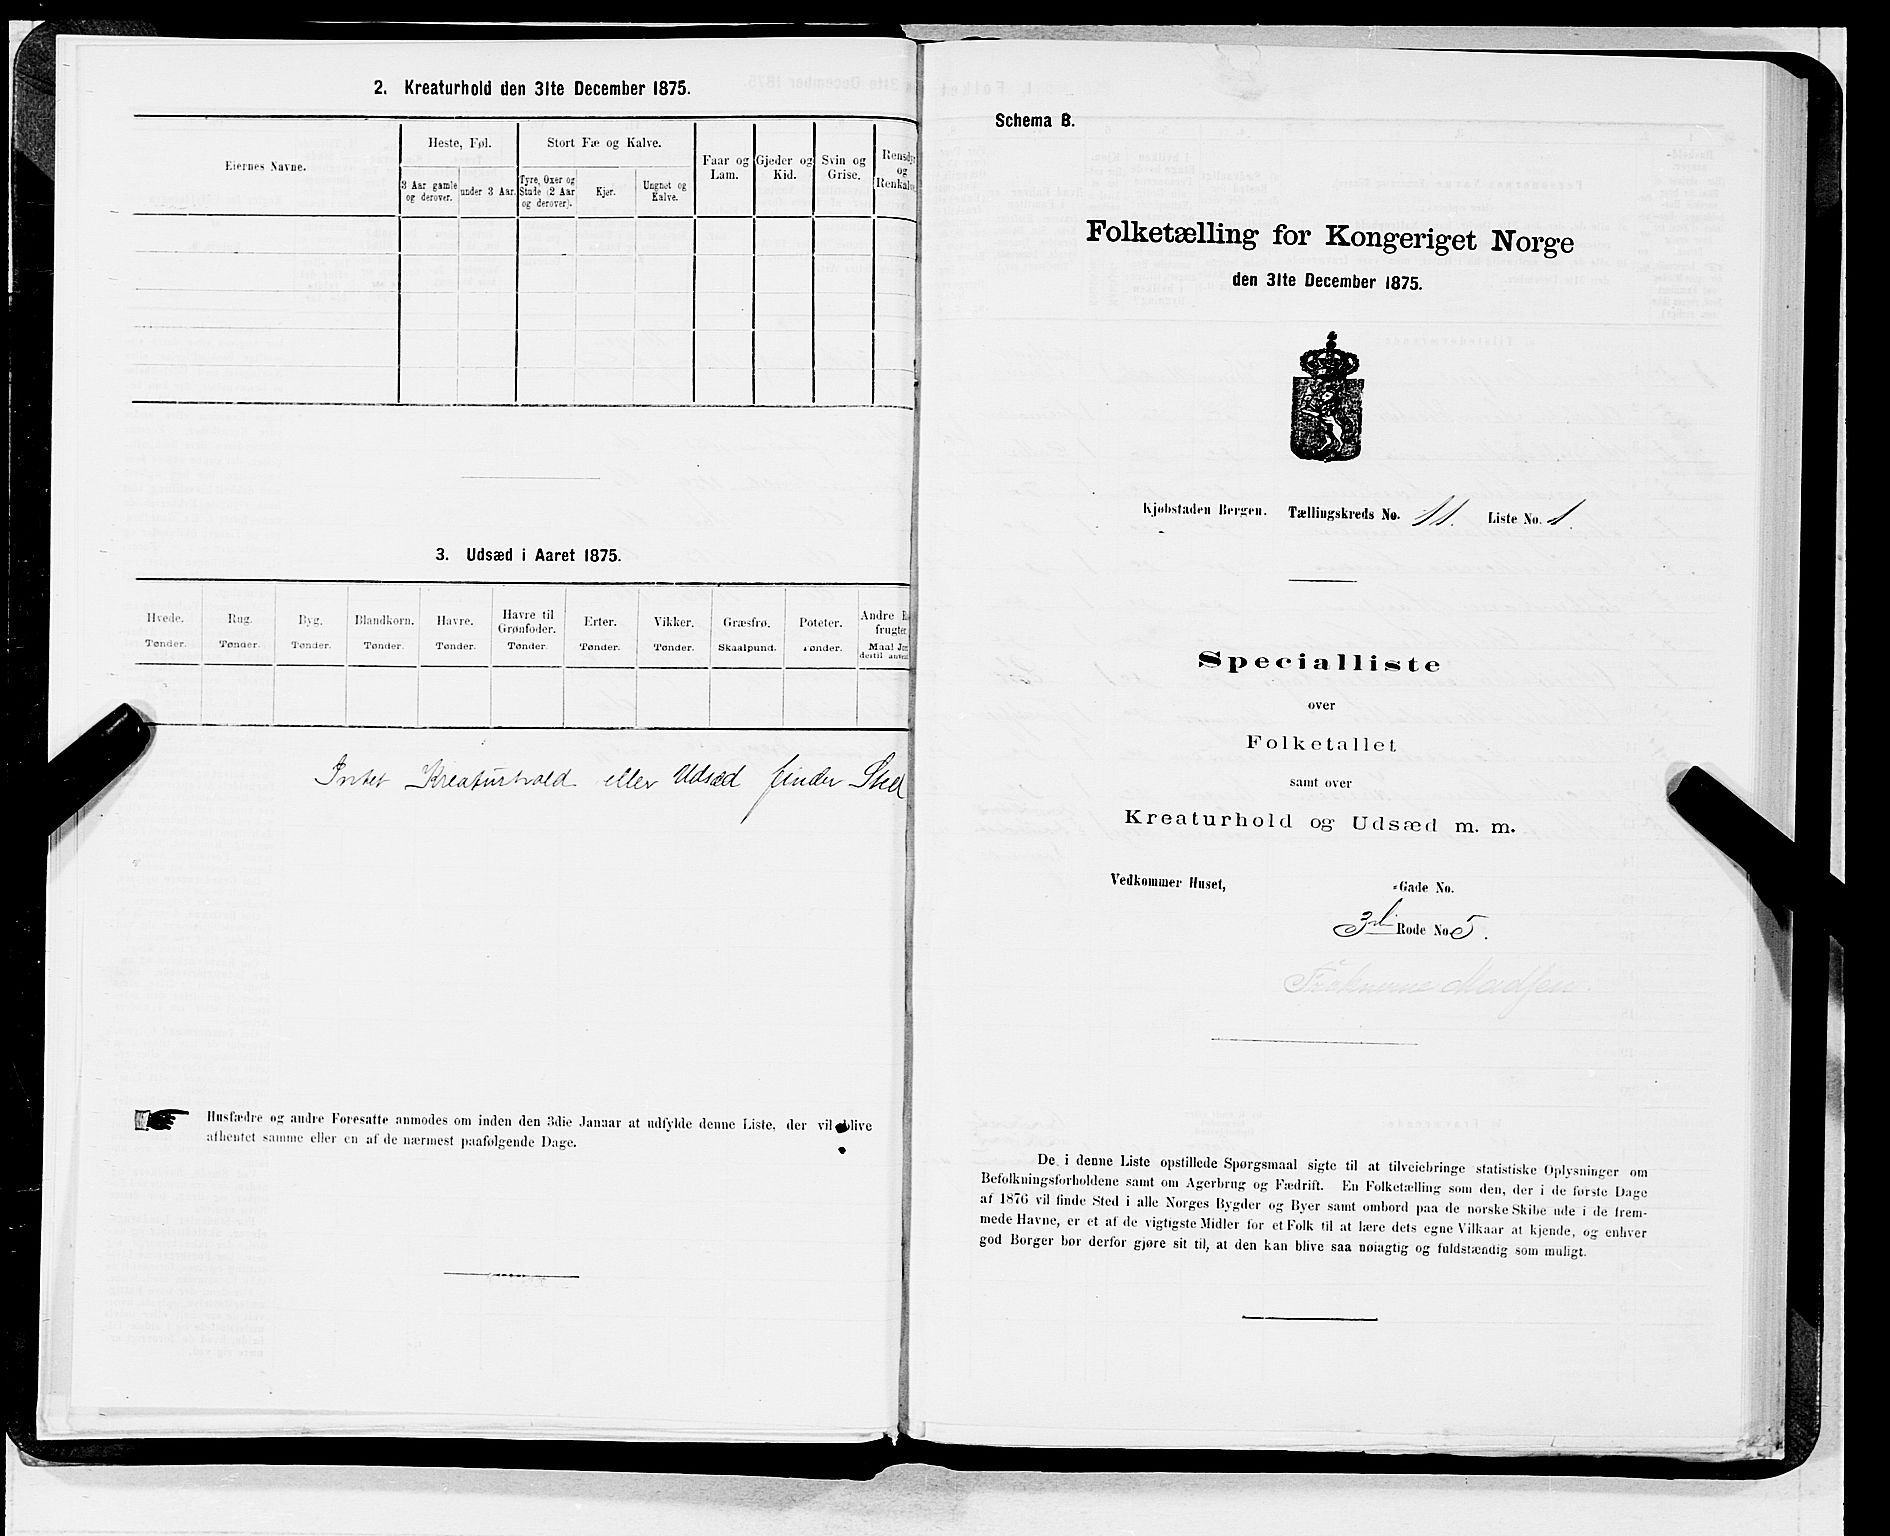 2. Kreaturhold den 31te December 1875.
Eiernes Navne.
Heste, Føl.
Stort Fæ og Kalve.
Faar og
Lam.
Gjeder og
Kid.
Svin og
Grise.
og
3 Aar gamle
og derover.
under 3 Aar.
Tyre, Oxer og
Stude (2 Aar
og derover).
Kjør.
Ungnøt og
Kalve.
3. Udsæd i Aaret 1875.
Hvede.
Rug.
Byg.
Blandkorn.
Havre.
Havre til
Grønfoder.
Erter.
Vikker.
Græsfrø.
Poteter.
Andre
frugter.
Tønder.
Tønder.
Tønder.
Tønder.
Tønder.
Tønder.
Tønder.
Tønder.
Skaalpund.
Tønder.
Maal
Intet Kreaturhold eller Udsæd finder Sted
Husfædre og andre Foresatte anmodes om inden den 3die Januar at udfylde denne Liste, der vil blive
afhentet samme eller en af de nærmest paafølgende Dage.
Schema B.
Folketælling for Kongeriget Norge
den 31te December 1875.
Kjøbstaden Bergen. Tællingskreds No. 11. Liste No. 1.
Specialliste
over
Folketallet
samt over
Kreaturhold og Udsæd m. m.
Vedkommer Huset, -Gade No.
Rode No. 5.
Madsen.
De i denne Liste opstillede Spørgsmaal sigte til at tilveiebringe statistiske Oplysninger om
Befolkningsforholdene samt om Agerbrug og Fædrift. En Folketælling som den, der i de første Dage
af 1876 vil finde Sted i alle Norges Bygder og Byer samt ombord paa de norske Skibe ude i de frem-
mede Havne, er et af de vigtigste Midler for et Folk til at lære dets egne Vilkaar at kjende, og enhver
god Borger bør derfor gjøre sit til, at den kan blive saa nøiagtig og fuldstændig som muligt.